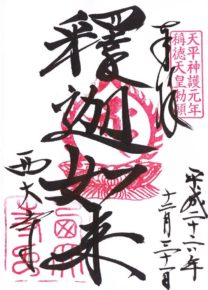 天平神護元年
稱德天皇勅願
奉拝
平成二十六年
十二月三十一日
釋迦如来
西大寺